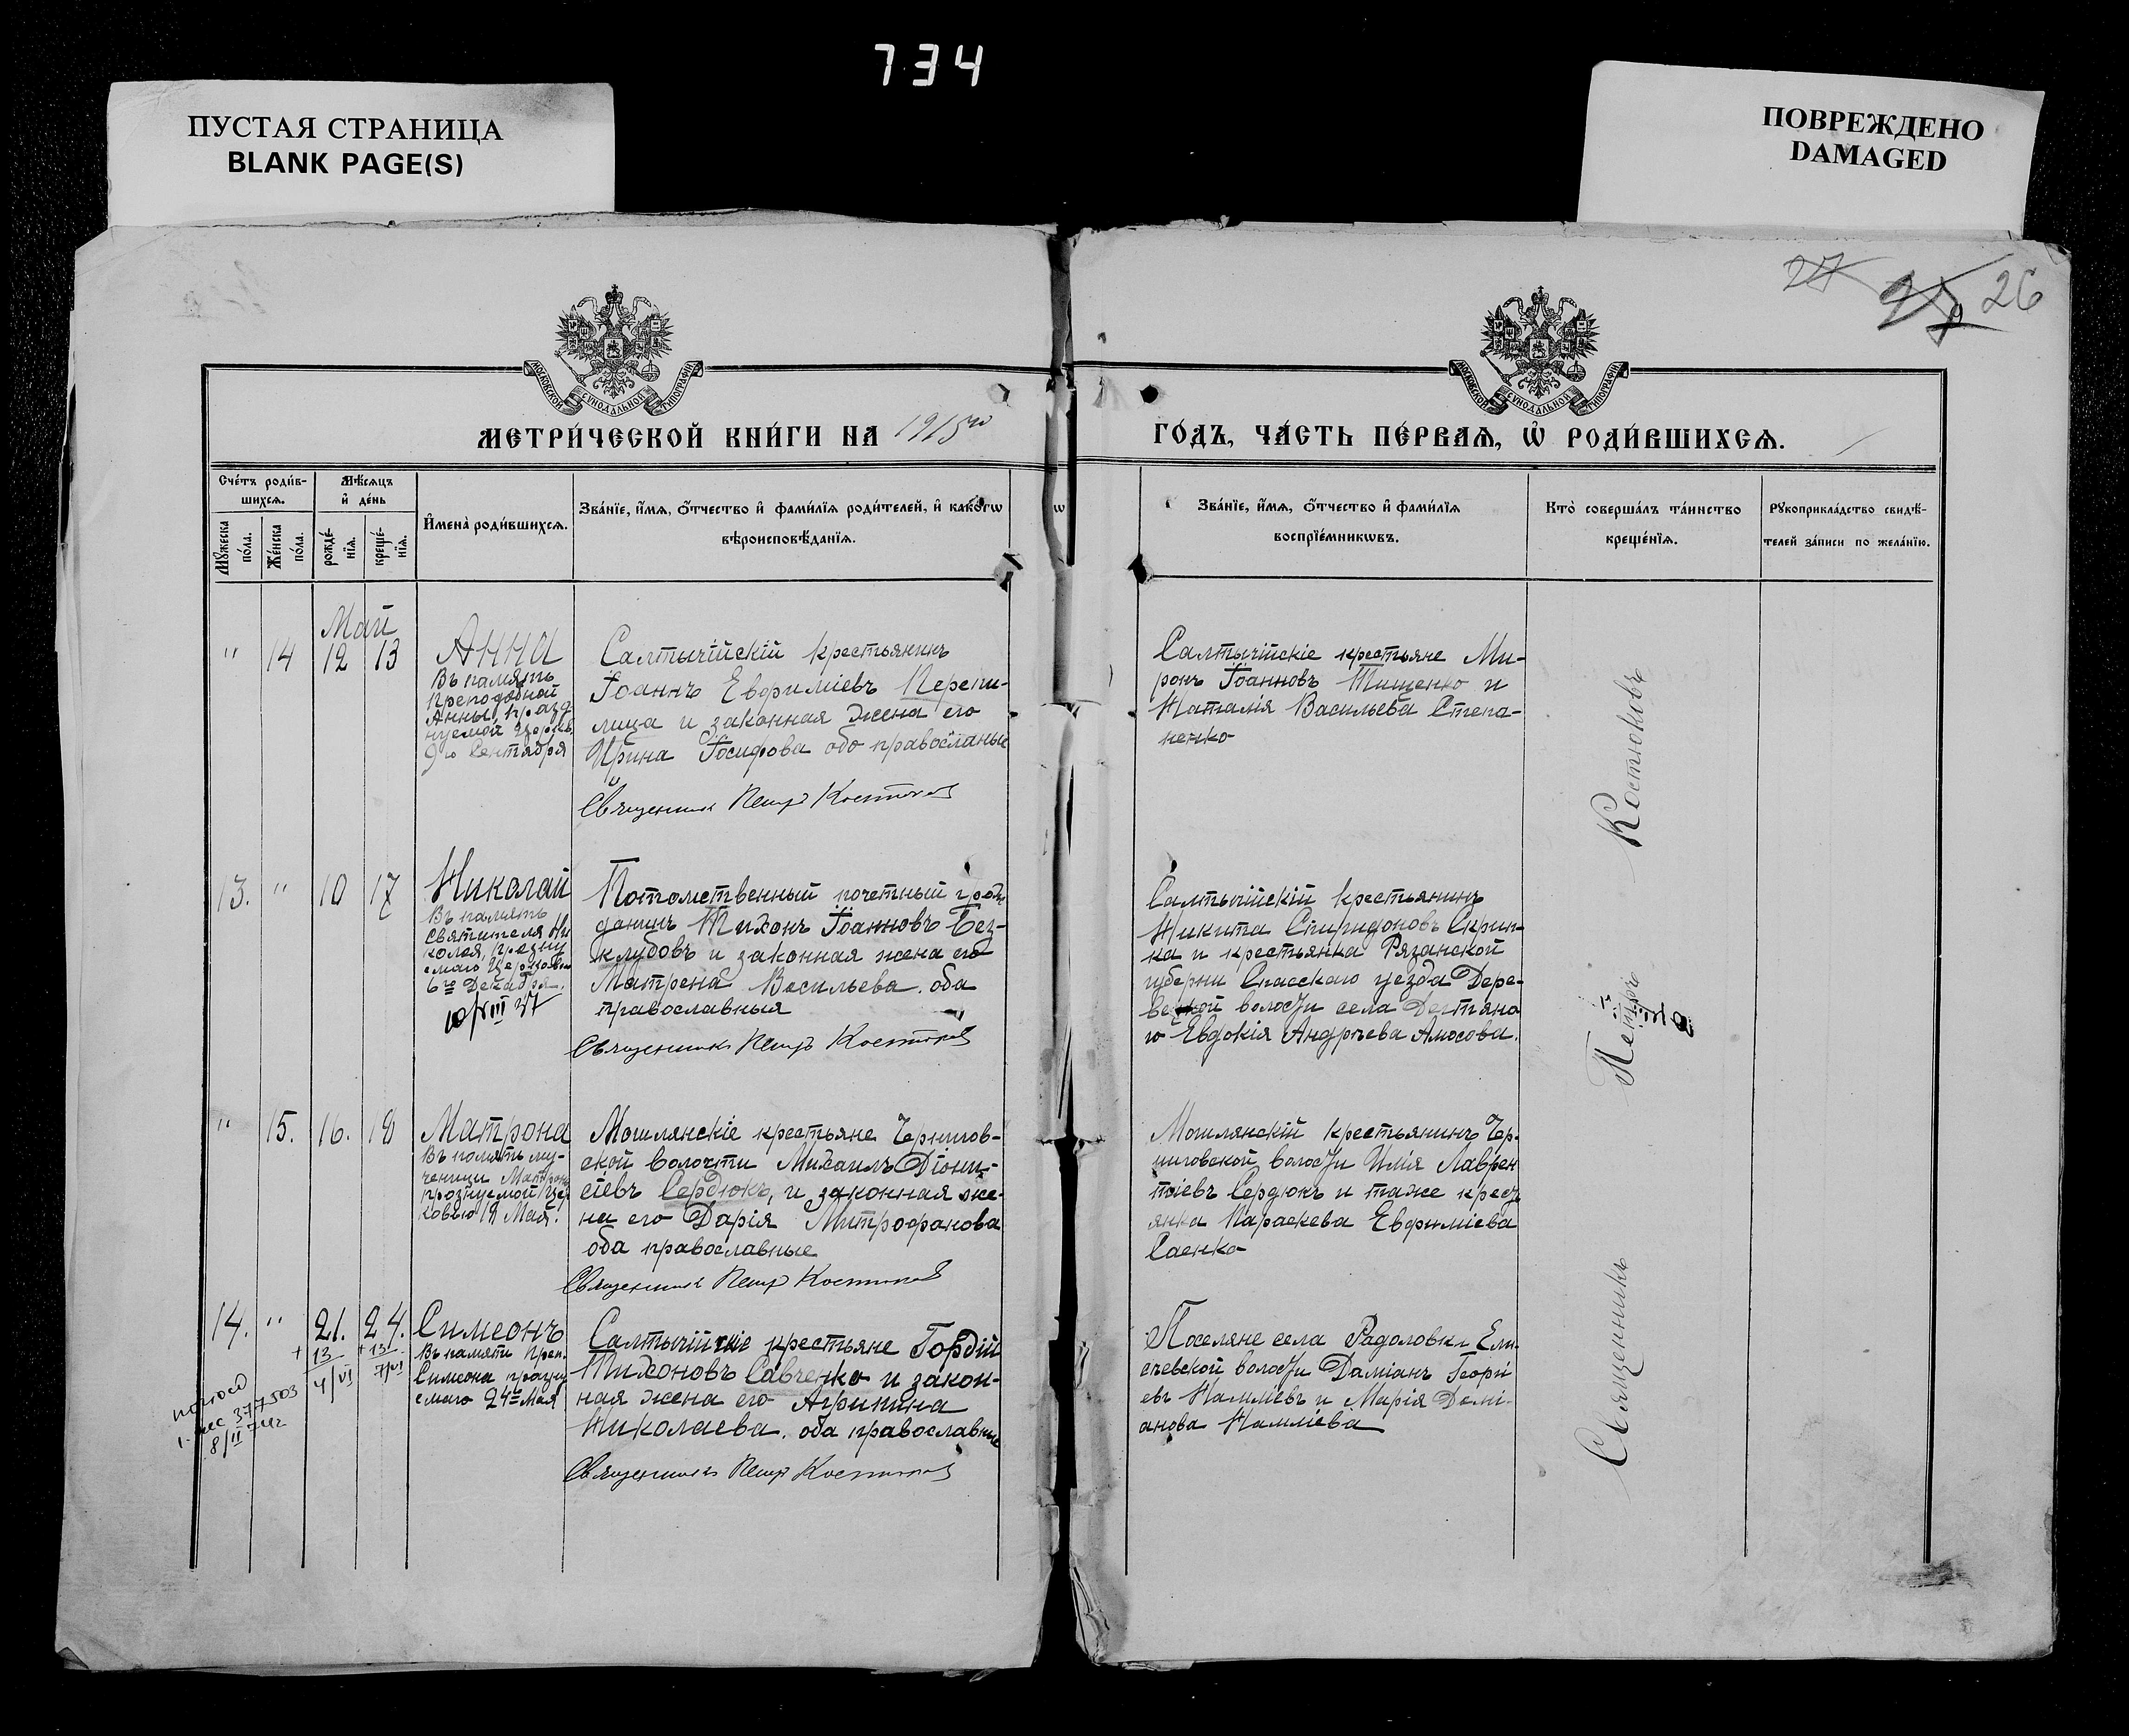 734
ПУСТАЯ СТРАНИЦА
BLANK PAGE(S)
ПОВРЕЖДЕНО
DAMAGED
27 25 26
МОСКОВСКОЙ СУНОДАЛЬНОЙ ТИПОГРАФІИ
МОСКОВСКОЙ СУНОДАЛЬНОЙ ТИПОГРАФІИ
МЕТРИ́ЧЕСКОЙ КНИ́ГИ НА 1915го
ГО́ДЪ, ЧА́СТЬ ПЕ́РВАѦ, Ѡ҆ РОДИ́ВШИХСѦ.
Сче́тъ роди́в-
шихсѧ.
Мѣ́сѧцъ
и҆ де́нь
Мꙋ́жеска
по́ла.
Же́нска
по́ла.
рожде́-
нїѧ.
креще́-
нїѧ.
И҆мена̀ роди́вшихсѧ.
Зва́нїе, и҆́мѧ, ѻ҆́тчество и҆ фами́лїѧ роди́телей, и҆ како́гѡ
вѣроисповѣ́данїѧ.
ѡ
Зва́нїе, и҆́мѧ, ѻ҆́тчество и҆ фами́лїѧ
воспрїе́мникѡвъ.
Кто̀ соверша́лъ та́инство
креще́нїѧ.
Рꙋкоприкла́дство свидѣ́-
телей за́писи по жела́нїю.
Май
" 14 12 13
Анна
Въ память
преподобной
Анны, празд
нуемой Церков.
9го Сентября
Салтычійскій крестьянинъ
Іоаннъ Евфиміевъ Перепи-
лица и законная жена его
Ирина Іосифова обо православные
Священникъ Петръ Костюковъ
Салтычійскіе крестьяне Ми-
ронъ Іоанновъ Тищенко и
Наталія Васильева Степа-
ненко
13. " 10 17
Николай
Въ память
Святителя Ни
колая, празну
емаго Церковью
6го Декабря.
10/VIII 37
Потомственный почетный граж
данинъ Тихонъ Іоанновъ Без-
клубовъ и законная жена его
Матрена Васильева. оба
православныя
Священникъ Петръ Костюковъ
Салтычійскій крестьянинъ
Никита Спиридоновъ Скрип-
ка и крестьянка Рязанской
губерніи Спасскаго уезда Дере-
венской волости села Дегтяна
го Евдокія Андреева Амосова.
" 15. 16. 18
Матрона
Въ память му-
ченицы Матроны
празнуемой Цер
ковью 18 Мая.
Могилянскіе крестьяне Чернигов-
ской волости Михаилъ Діони-
сіевъ Сердюкъ, и законная же-
на его Дарія Митрофанова
оба православные
Священникъ Петръ Костюковъ
Могилянскій крестьянинъ Чер-
ниговской волости Илія Лаврен
тіевъ Сердюкъ и таже крест
янка Параскева Евфиміева
Саенко
14. " 21. 24.
+ 13 + 13
4/VI 7/VI
Симеонъ
Въ памяти Преп.
Симеона празну
емаго 24го Мая
377503
8/II
Салтычійскіе крестьяне Гордій
Тихоновъ Савченко и закон-
ная жена его Агрипина
Николаева. оба православные
Священникъ Петръ Костюковъ
Поселяне села Радоловки Ели
сеевской волости Даміанъ Георгі
евъ Намліевъ и Марія Демі-
анова Намліева
Священникъ Петръ Костюковъ